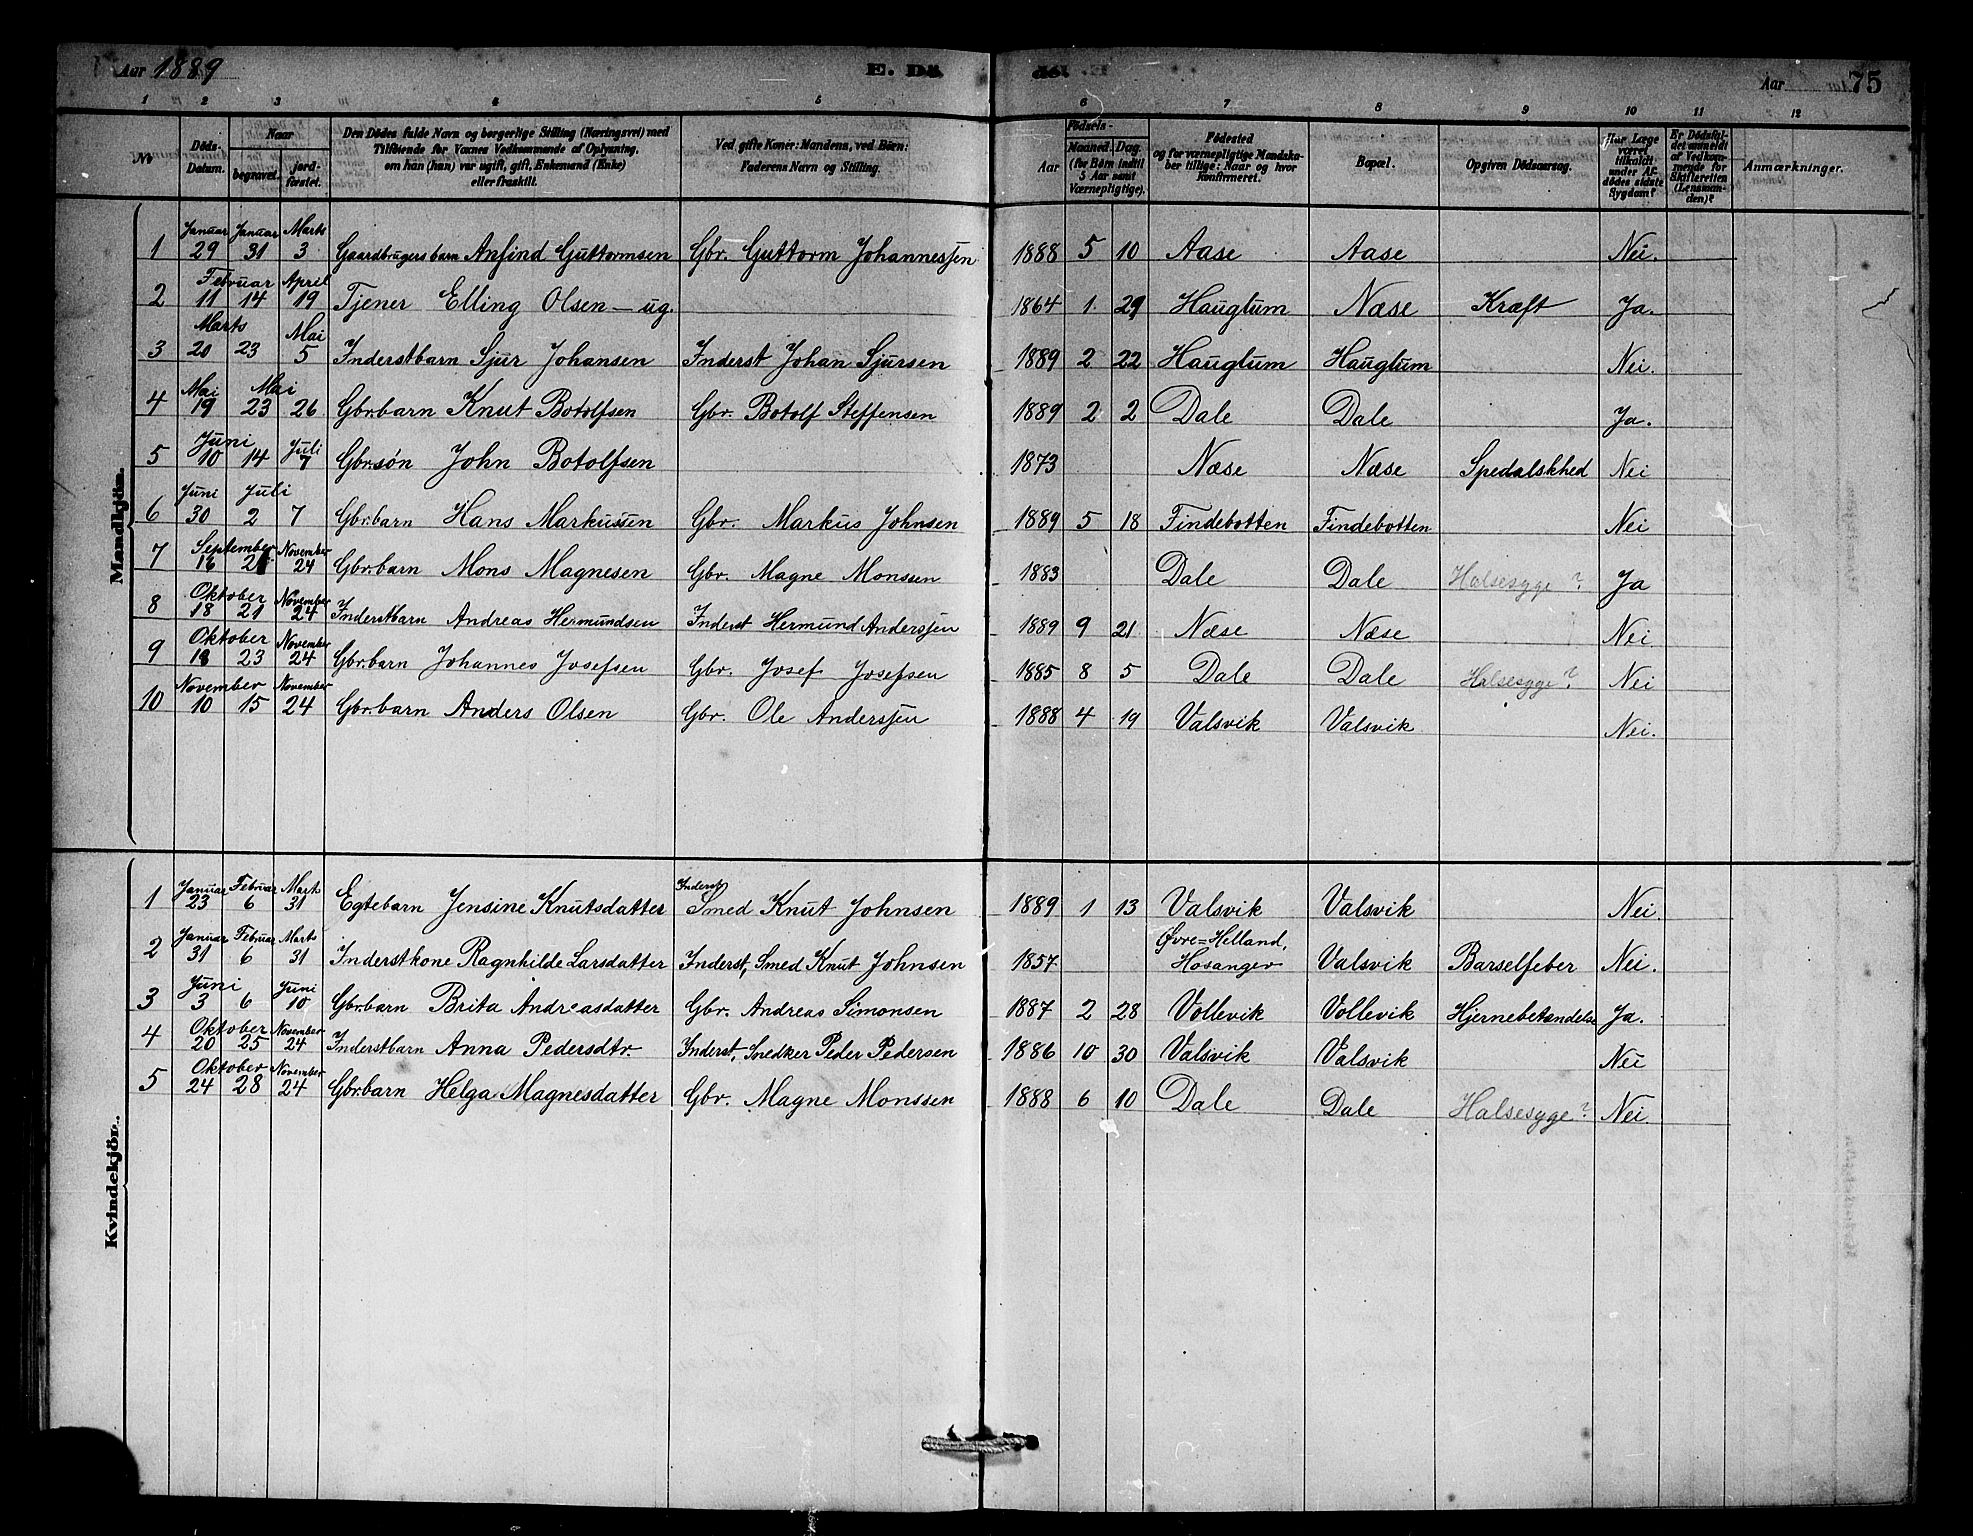 Aar 1889 E. Dö
Aar 75
1 2 3 4 5 6 7 8 9 10 11 12
No
Döds-Datum.
Naar
begravet.
jord-fæstet.
Den Dödes fulde Navn og borgerlige Stilling (Næringsvei) med
Tilföiende for Voxnes Vedkommende af Oplysning,
om han (hun) var ugift, gift, Enkemand (Enke)
eller fraskilt.
Ved gifte Koner: Mandens, ved Börn:
Faderens Navn og Stilling.
Födsels-
Aar
Maaned. Dag.
(for Börn indtil
5 Aar samt
Værnepligtige).
Födested
og for værnepligtige Mandska-
ber tillige: Naar og hvor
konfirmeret.
Bopæl.
Opgiven Dödsaarsag.
Har Læge
været
tilkaldt
under Af-
dödes sidste
Sygdom?
Er Dödsfal-
det anmeldt
af Vedkom-
mende for
Skifteretten
(Lensman-
den)?
Anmærkninger.
Mandkjön.
Januar Januar Marts
1 29 31 3 Gaardbrugersbarn Anfind Guttormsen Gbr. Guttorm Johannessen 1888 5 10 Aase Aase Nei.
Februar April
2 11 14 19 Tjener Elling Olsen — ug. 1864 1 29 Hauglum Næse Kræft Ja.
Marts Mai
3 20 23 5 Inderstbarn Sjur Johansen Inderst Johan Sjursen 1889 2 22 Hauglum Hauglum Nei.
Mai Mai
4 19 23 26 Gbr.barn Knut Botolfsen Gbr. Botolf Steffensen 1889 2 2 Dale Dale Ja.
Juni Juli
5 10 14 7 Gbr.søn John Botolfsen 1873 Næse Næse Spedalskhed Nei
Juni Juli
6 30 2 7 Gbr.barn Hans Markussen Gbr. Markus Johnsen 1889 5 18 Findebotten Findebotten Nei
September November
7 16 21 24 Gbr.barn Mons Magnesen Gbr. Magne Monssen 1883 Dale Dale Halsesyge? Ja
Oktober November
8 18 21 24 Inderstbarn Andreas Hermundsen Inderst Hermund Anderssen 1889 9 21 Næse Næse Nei
Oktober November
9 18 23 24 Gbr.barn Johannes Josefsen Gbr. Josef Josefsen 1885 8 5 Dale Dale Halsesyge? Nei
November November
10 10 15 24 Gbr.barn Anders Olsen Gbr. Ole Anderssen 1888 4 19 Valsvik Valsvik Nei.
Kvindekjön.
Januar Februar Marts Inderst
1 23 6 31 Egtebarn Jensine Knutsdatter Smed Knut Johnsen 1889 1 13 Valsvik Valsvik Nei
Januar Februar Marts Øvre=Helland,
2 31 6 31 Inderstkone Ragnhilde Larsdatter Inderst, Smed Knut Johnsen 1857 Hosanger Valsvik Barselfeber Nei.
Juni Juni
3 3 6 10 Gbr.barn Brita Andreasdatter Gbr. Andreas Simonsen 1887 2 28 Vollevik Vollevik Hjernebetændelse Ja.
Oktober November
4 20 25 24 Inderstbarn Anna Pedersdtr. Inderst, Snedker Peder Pedersen 1886 10 30 Valsvik Valsvik Nei
Oktober November
5 24 28 24 Gbr.barn Helga Magnesdatter Gbr. Magne Monssen 1888 6 10 Dale Dale Halsesyge? Nei.